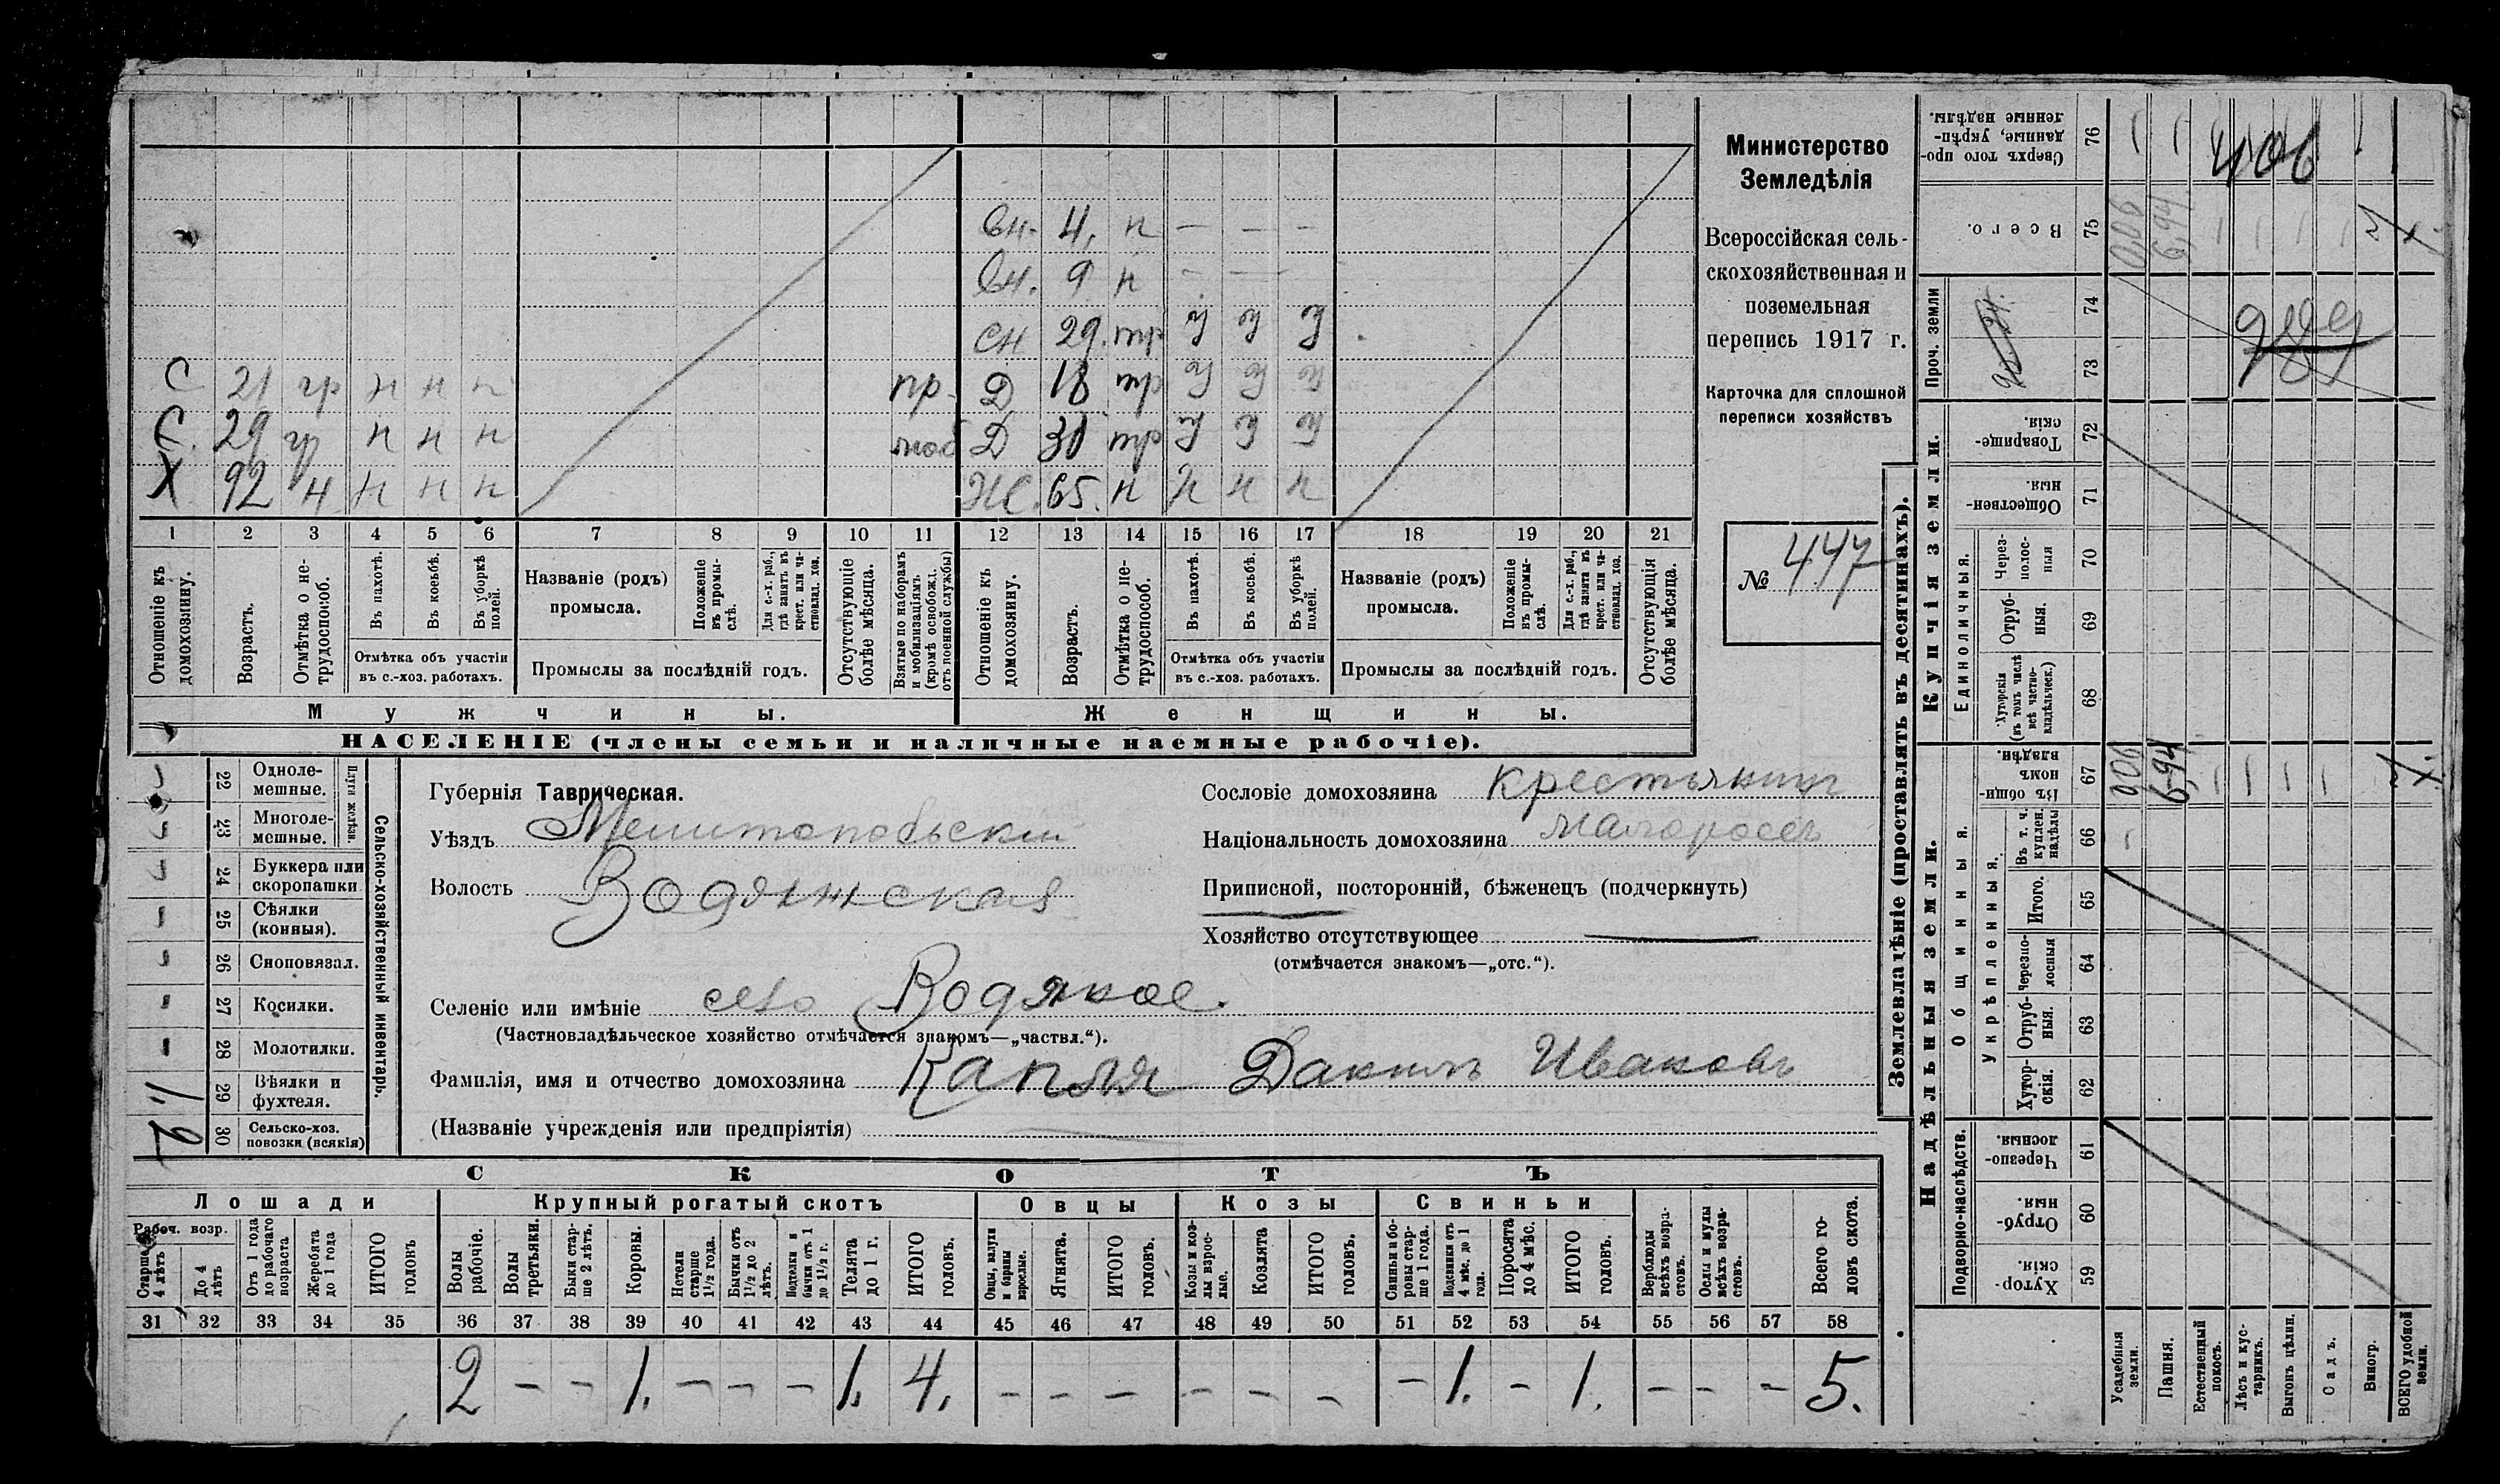 Министерство
Земледѣлія
Всероссійская сель-
скохозяйственная и
поземельная
перепись 1917 г.
Карточка для сплошной
переписи хозяйствъ
№ 447
вн. 4, н — — —
вн. 9 н — —
сн 29. тр у у у
С 21 гр н н н пр. Д 18 тр у у у
С. 29 гр н н н моб Д 30 тр у у у
Х 92 н н н н Ж. 65. н н н н
1 2 3 4 5 6 7 8 9 10 11 12 13 14 15 16 17 18 19 20 21
Отношеніе къ домохозяину.
Возрастъ.
Отмѣтка о не-трудоспособ.
Въ пахотѣ.
Въ косьбѣ.
Въ уборкѣ полей.
Отмѣтка объ участіи
въ с.-хоз. работахъ.
Названіе (родъ)
промысла.
Положеніе въ промы-слѣ.
Для с.-х. раб., гдѣ занятъ въ крест. или ча-стновлад. хоз.
Промыслы за послѣдній годъ.
Отсутствующіе болѣе мѣсяца.
Взятые по наборамъ и мобилизаціямъ (кромѣ освобожд. отъ военной службы)
Отношеніе къ домохозяину.
Возрастъ.
Отмѣтка о не-трудоспособ.
Въ пахотѣ.
Въ косьбѣ.
Въ уборкѣ полей.
Отмѣтка объ участіи
въ с.-хоз. работахъ.
Названіе (родъ)
промысла.
Положеніе въ промы-слѣ.
Для с.-х. раб., гдѣ занята въ крест. или ча-стновлад. хоз.
Промыслы за послѣдній годъ.
Отсутствующія болѣе мѣсяца.
Мужчины. Женщины.
НАСЕЛЕНІЕ (члены семьи и наличные наемные рабочіе).
22 Одноле-мешные.
23 Многоле-мешные.
Плуги желѣзн.
24 Буккера или скоропашки
25 Сѣялки (конныя).
26 Сноповязал.
27 Косилки.
28 Молотилки.
1, 29 Вѣялки и фухтеля.
30 Сельско-хоз. повозки (всякія)
Сельско-хозяйственный инвентарь.
Губернія Таврическая.
Уѣздъ Мелитопольскій
Волость Водянская
Сословіе домохозяина крестьянинъ
Національность домохозяина малороссъ
Приписной, посторонній, бѣженецъ (подчеркнуть)
Хозяйство отсутствующее —
(отмѣчается знакомъ—„отс.“).
Селеніе или имѣніе село Водяное.
(Частновладѣльческое хозяйство отмѣчается знакомъ—„частвл.“).
Фамилія, имя и отчество домохозяина Капля Данилъ Ивановъ
(Названіе учрежденія или предпріятія)
СКОТЪ
Лошади Крупный рогатый скотъ Овцы Козы Свиньи
Рабоч. возр.
Старше 4 лѣтъ
До 4 лѣтъ
Отъ 1 года до рабочаго возраста
Жеребята до 1 года
ИТОГО головъ
Волы рабочіе.
Волы третьяки.
Быки стар-ше 2 лѣтъ.
Коровы.
Нетели старше 1½ года.
Бычки отъ 1½ до 2 лѣтъ.
Подтелки и бычки отъ 1 до 1½ г.
Телята до 1 г.
ИТОГО головъ.
Овцы, валухи и бараны взрослые.
Ягнята.
ИТОГО головъ.
Козы и коз-лы взрос-лые.
Козлята
ИТОГО головъ.
Свиньи и бо-ровы стар-ше 1 года.
Подсвинки отъ 4 мѣс. до 1 года.
Поросята до 4 мѣс.
ИТОГО головъ.
Верблюды всѣхъ возра-стовъ.
Ослы и мулы всѣхъ возра-стовъ.
Всего го-ловъ скота.
31 32 33 34 35 36 37 38 39 40 41 42 43 44 45 46 47 48 49 50 51 52 53 54 55 56 57 58
2 – – 1. – – – 1. 4. – – – – – – – 1. – 1. – – – 5.
Землевладѣніе (проставлять въ десятинахъ).
Надѣльныя земли. Купчія земли. Проч. земли
Подворно-наслѣдств.
Общинныя.
Укрѣпленныя.
Единоличныя.
59 Хутор-скія.
60 Отруб-ныя.
61 Черезпо-лосныя.
62 Хутор-скія.
63 Отруб-ныя.
64 Черезпо-лосныя
65 Итого.
66 Въ т. ч. куплен. надѣлы
67 Въ общи-номъ владѣн. 0,06 6,94
68 Хуторскія (въ томъ числѣ всѣ частно-владѣльческ.)
69 Отруб-ныя.
70 Через-полос-ныя
71 Обществен-ныя.
72 Товарище-скія.
73
74
75 Всего. 0,06 6,94
76 Сверхъ того про-данные, укрѣп-ленные надѣлы.
406
989
Усадебныя земли.
Пашня.
Естественный покосъ.
Лѣсъ и кус-тарникъ.
Выгонъ цѣлин.
Садъ.
Виногр.
ВСЕГО удобной земли.